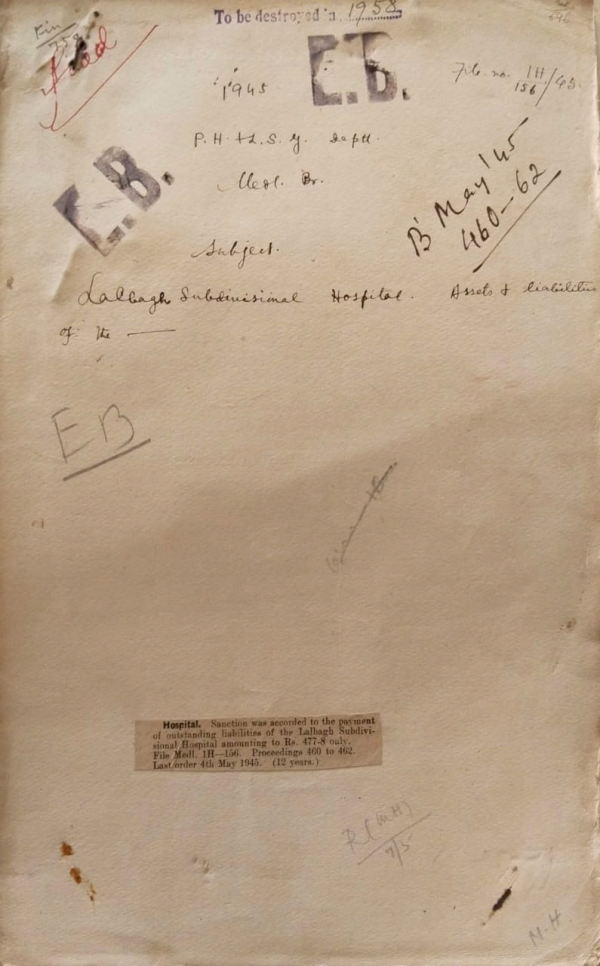 To be destroyed in 1958
1945
E.B.
File no. 1H/156/45
P.H. & L.S.G. Deptt.
E.B.
Medl. Br.
B' May '45
460-62
Subject.
Lalbagh Subdivisional Hospital. Assets & liabilities
of the —
EB
Hospital. Sanction was accorded to the payment
of outstanding liabilities of the Lalbagh Subdivi-
sional Hospital amounting to Rs. 477-8 only.
File Medl. 1H—156. Proceedings 460 to 462.
Last order 4th May 1945. (12 years.)
7/5
M.H